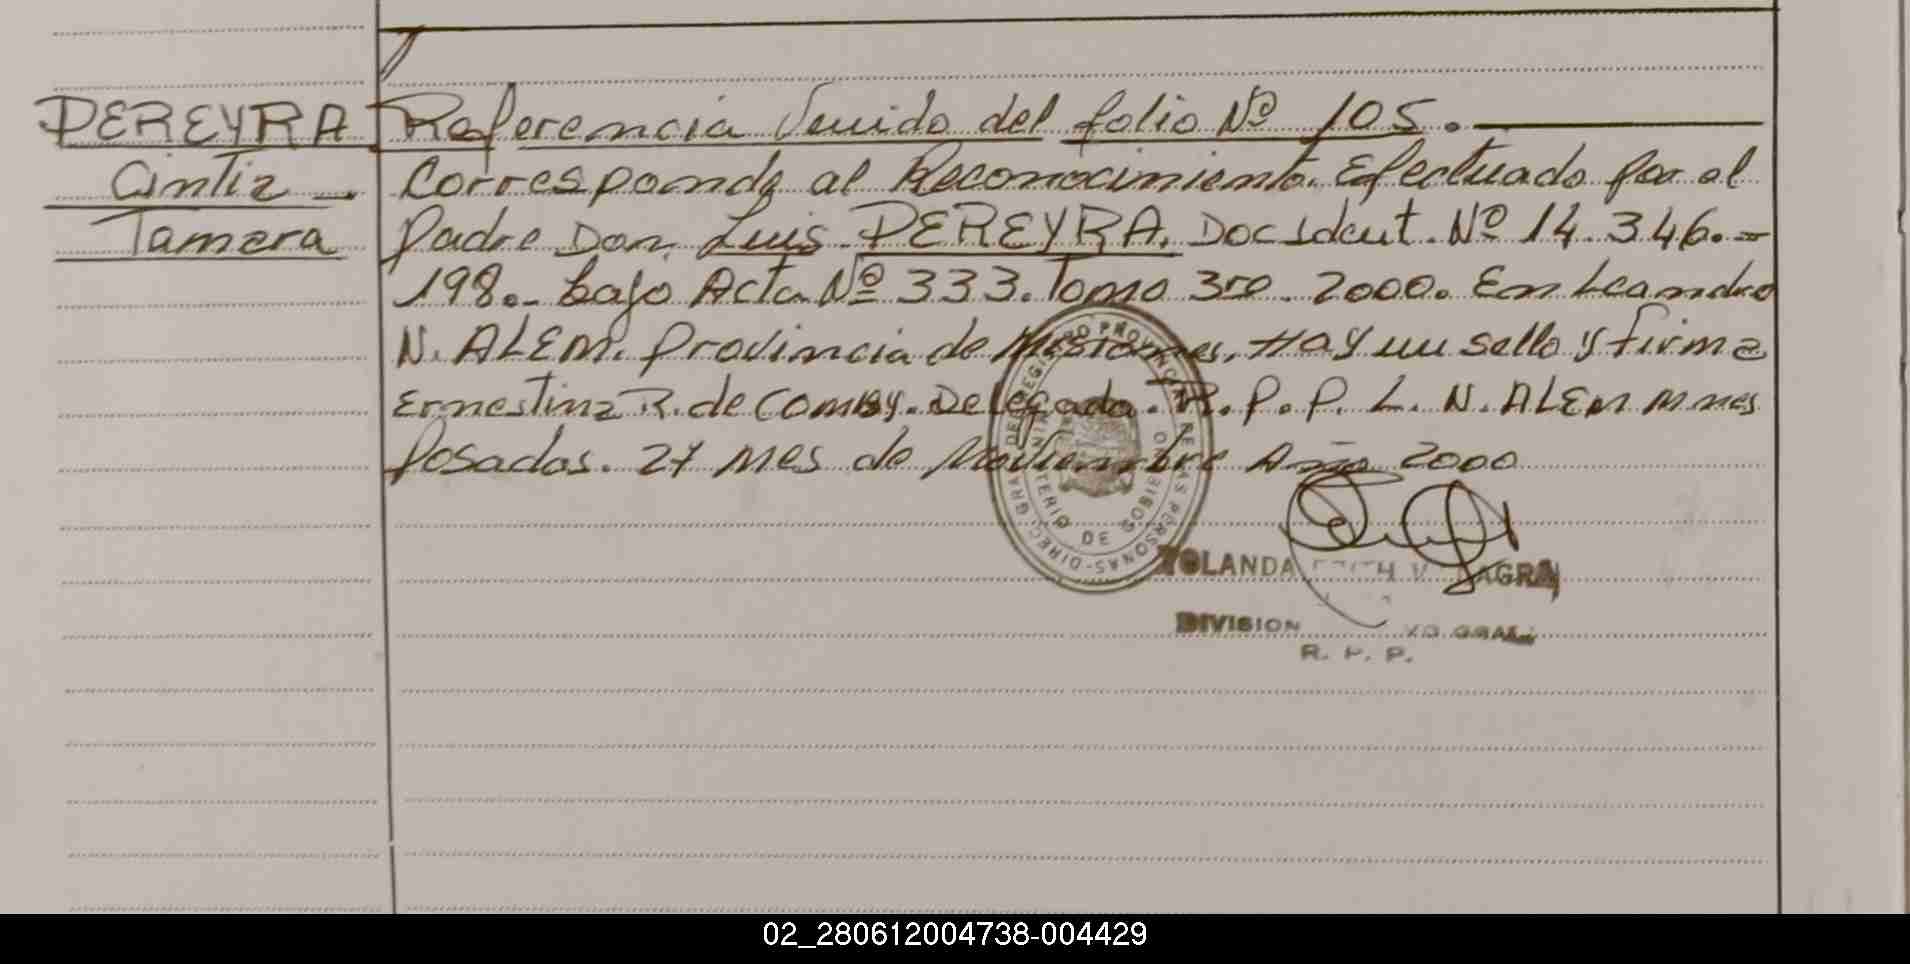 PEREYRA Referencia Venido del folio Nº 105.
Cintia - Corresponde al Reconocimiento. Efectuado por el
Tamara Padre Don. Luis. PEREYRA. Doc Ident. Nº 14.346.-
198.- bajo Acta Nº 333. Tomo 3ro. 2000. En Leandro
N. ALEM. Provincia de Misiones. Hay un sello y firma
Ernestina R. de Comby. Delegada. R. P. P. L. N. ALEM Mnes
Posadas. 27 Mes de Noviembre Año 2000
REGISTRO PROVINCIAL DE LAS PERSONAS-DIREC. GRAL. DE
MINISTERIO DE GOBIERNO
YOLANDA
DIVISION
R. P. P.
02_280612004738-004429